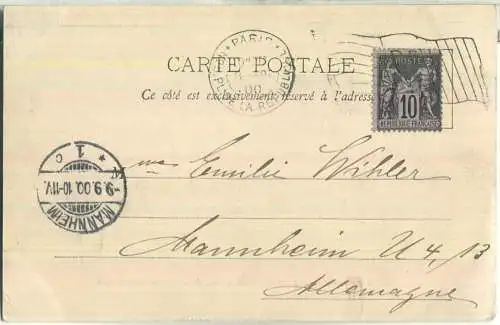 PARIS
PL. DE LA REPUBLIQUE
00
CARTE POSTALE
Ce côté est exclusivement réservé à l'adresse
POSTE
10
REPUBLIQUE FRANCAISE
* 1 c
9.9.00.10-11V.
MANNHEIM
Emilie Wihler
Mannheim U 4, 13
Allemagne